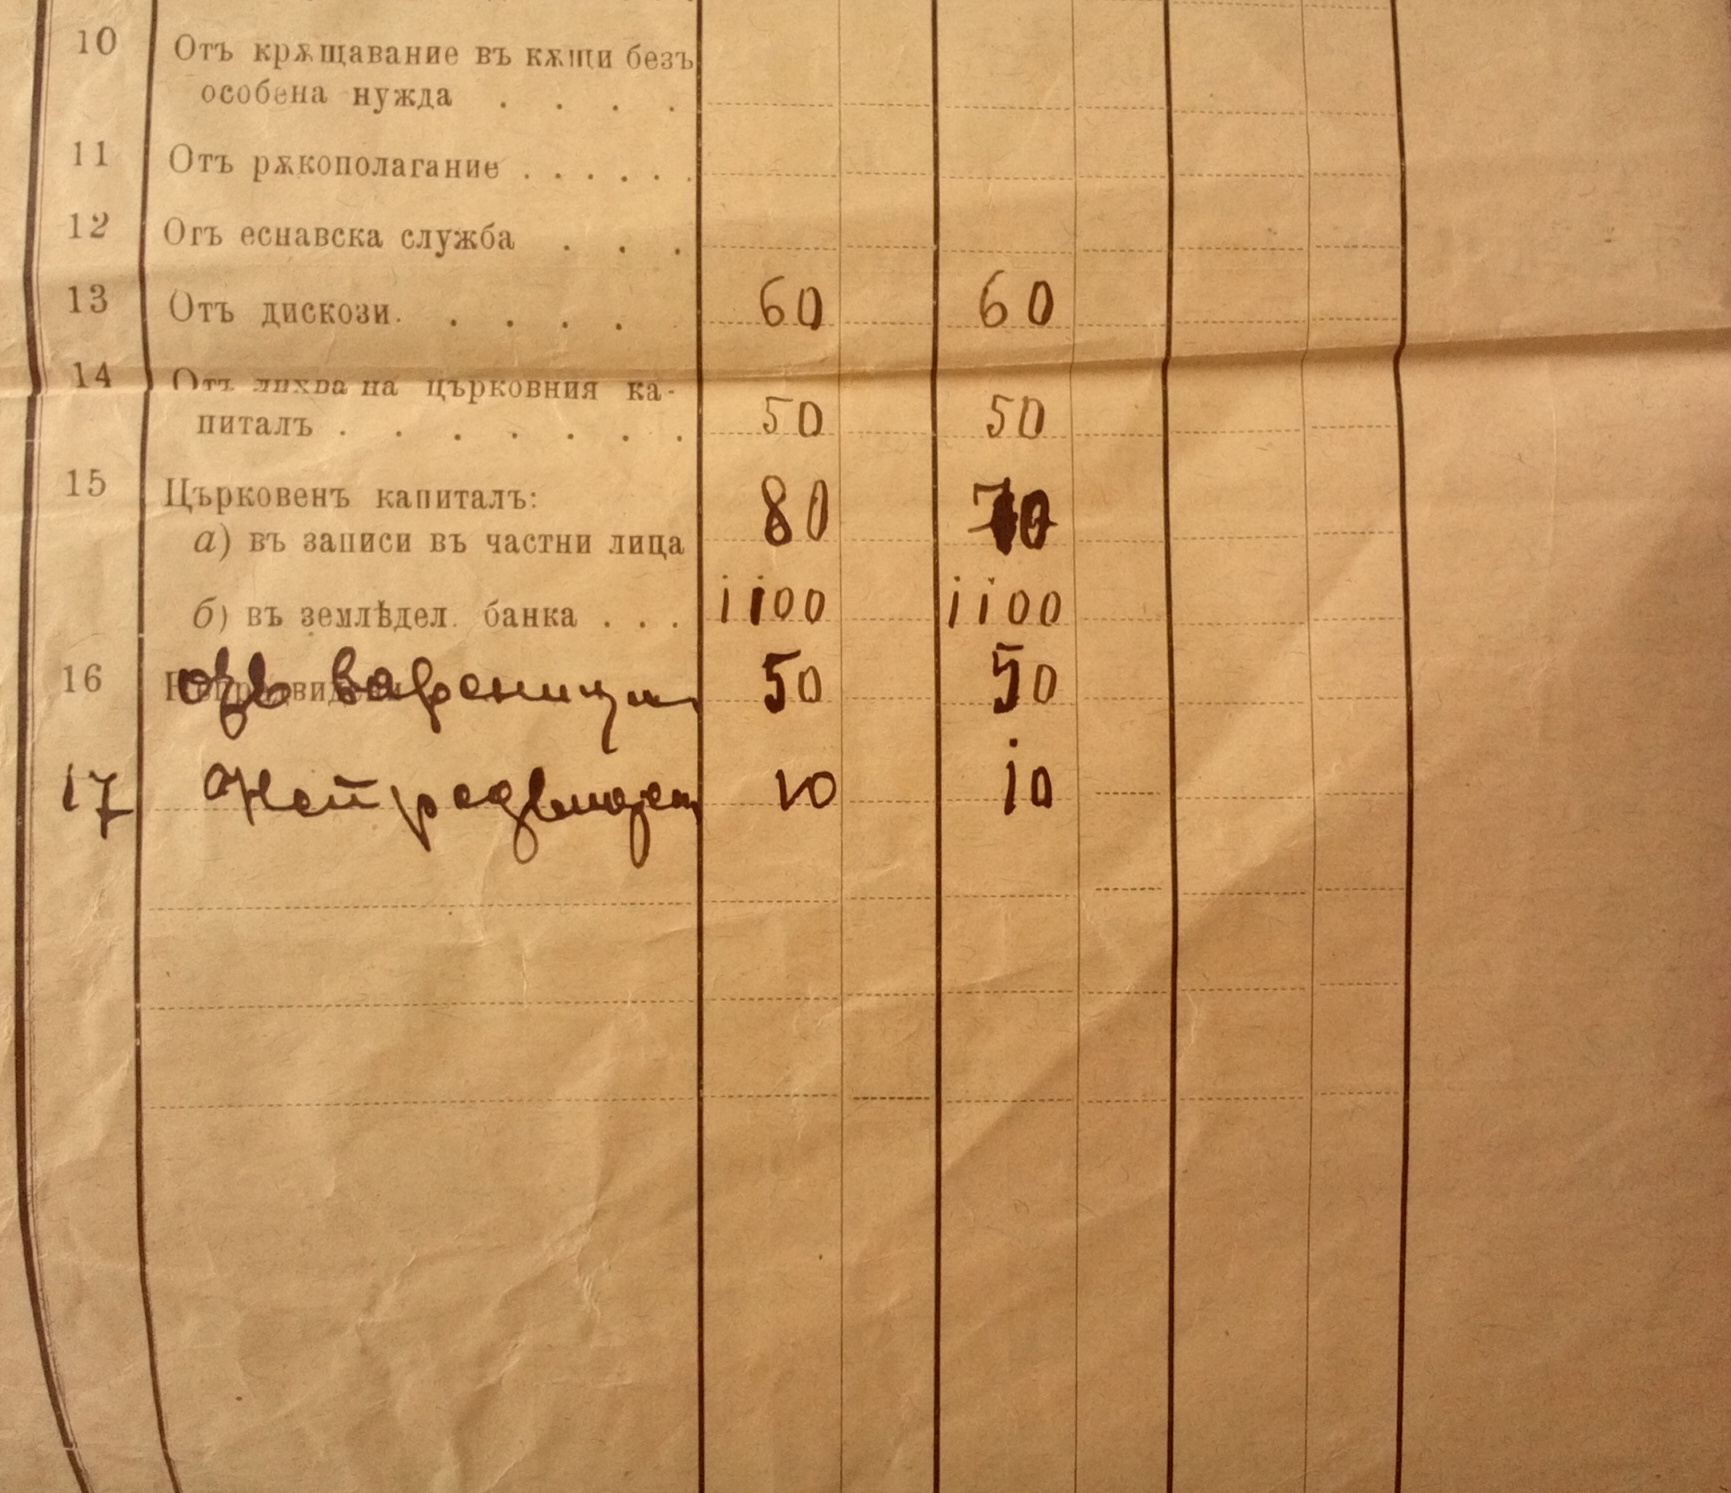 10 Отъ крѫщавание въ кѫщи безъ
особена нужда . . . .
11 Отъ рѫкополагание . . . . . .
12 Отъ еснавска служба . . .
13 Отъ дискози. . . . . 60 60
14 Отъ лихва на църковния ка-
питалъ . . . . . . . 50 50
15 Църковенъ капиталъ:
а) въ записи въ частни лица 80 70
б) въ землѣдел. банка . . . 1100 1100
16 50 50
17 Непредвидени 10 10